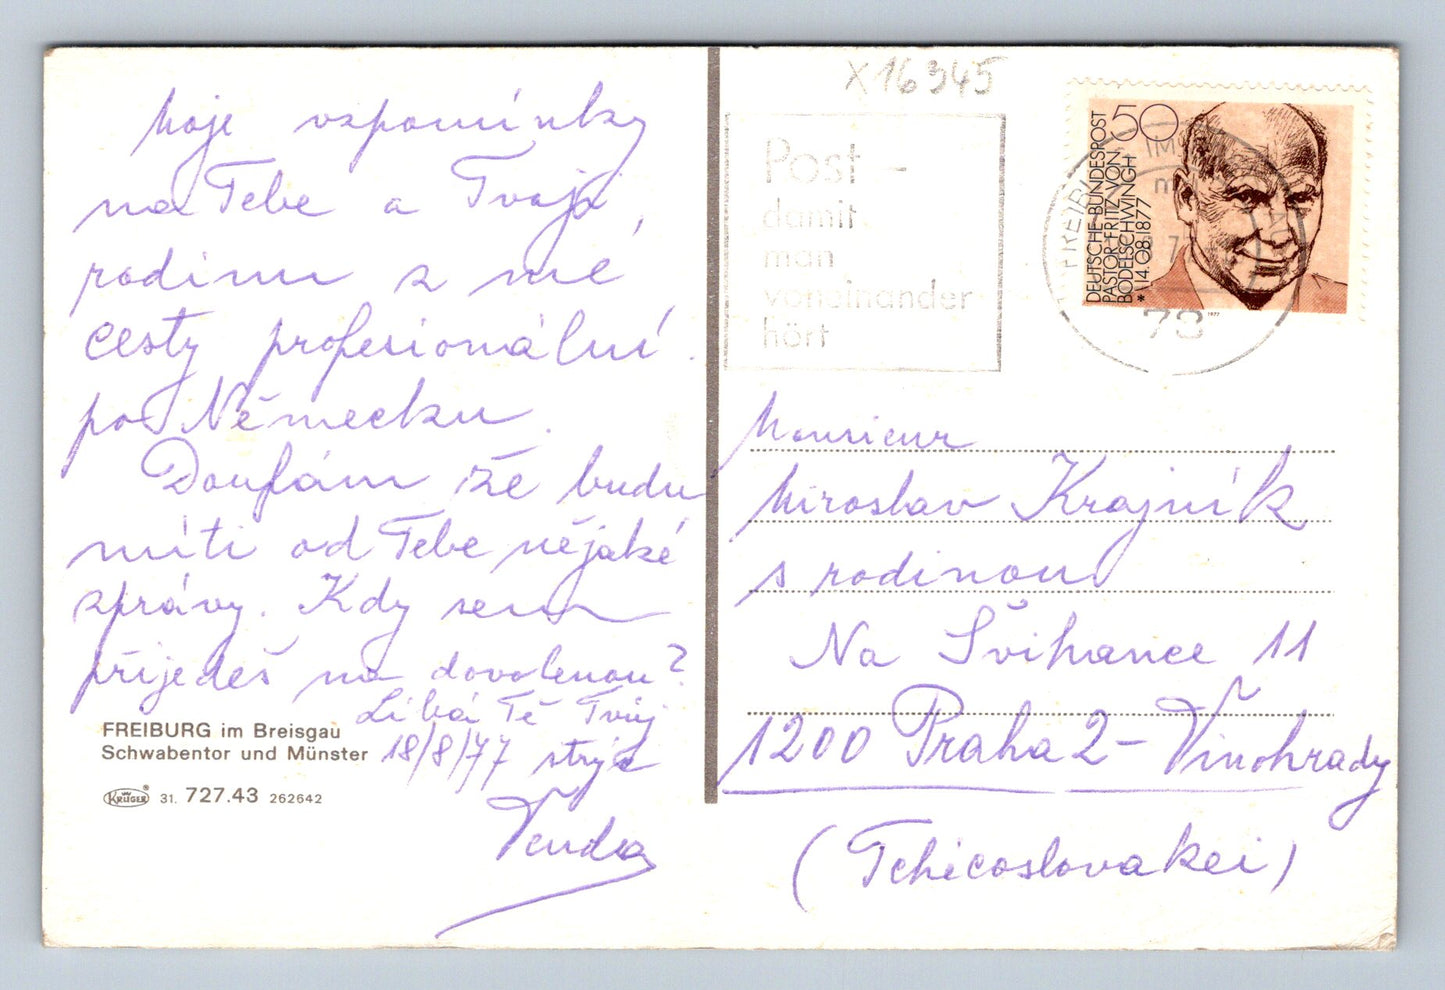 Moje vzpomínky
na Tebe a Tvoji
rodinu z mé
cesty profesionální
po Německu.
Doufám že budu
míti od Tebe nějaké
zprávy. Kdy sem
přijedeš na dovolenou?
Líbá Tě Tvůj
18/8/77 strýc
Venda
FREIBURG im Breisgau
Schwabentor und Münster
KRÜGER 31. 727.43 262642
X16345
Post -
damit
man
voneinander
hört
50
DEUTSCHE BUNDESPOST
PASTOR FRITZ VON
BODELSCHWINGH
*14.08.1877
1977
FREIBURG IM
78
Monsieur
Miroslav Krajník
s rodinou
Na Švihance 11
1200 Praha 2 - Vinohrady
(Tchicoslovakei)